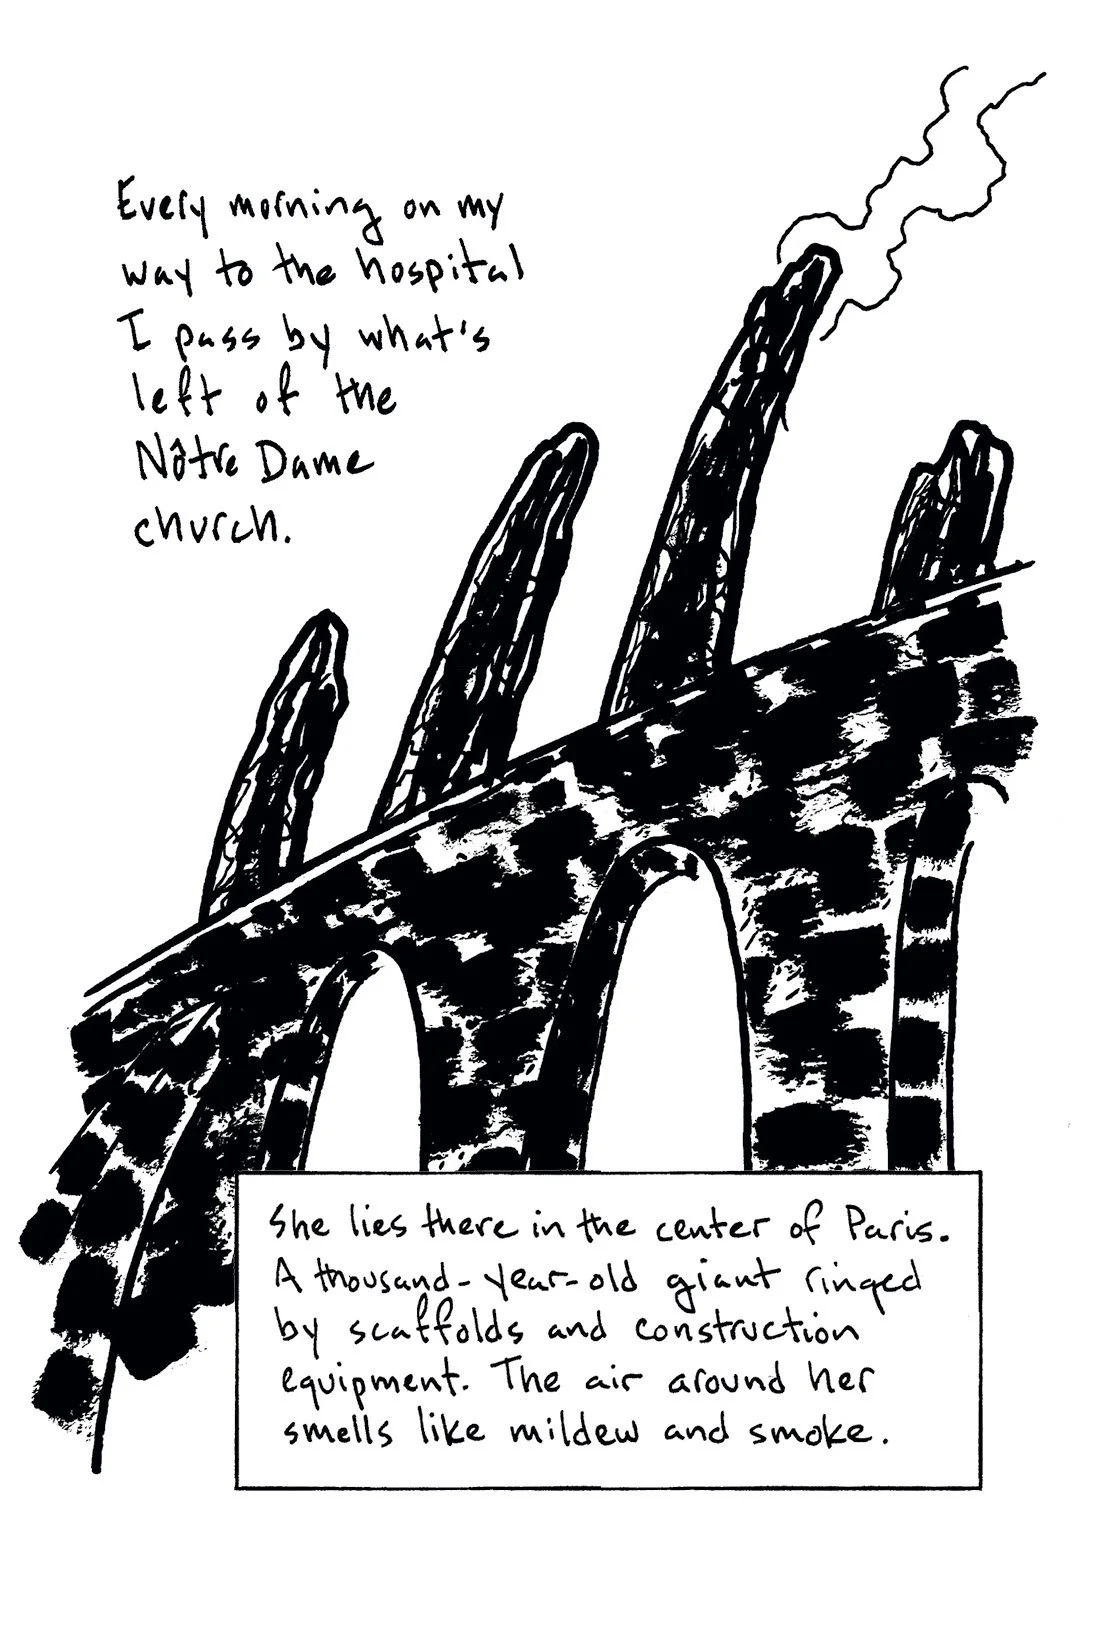 Every morning on my
way to the hospital
I pass by what's
left of the
Nôtre Dame
church.
She lies there in the center of Paris.
A thousand-year-old giant ringed
by scaffolds and construction
equipment. The air around her
smells like mildew and smoke.